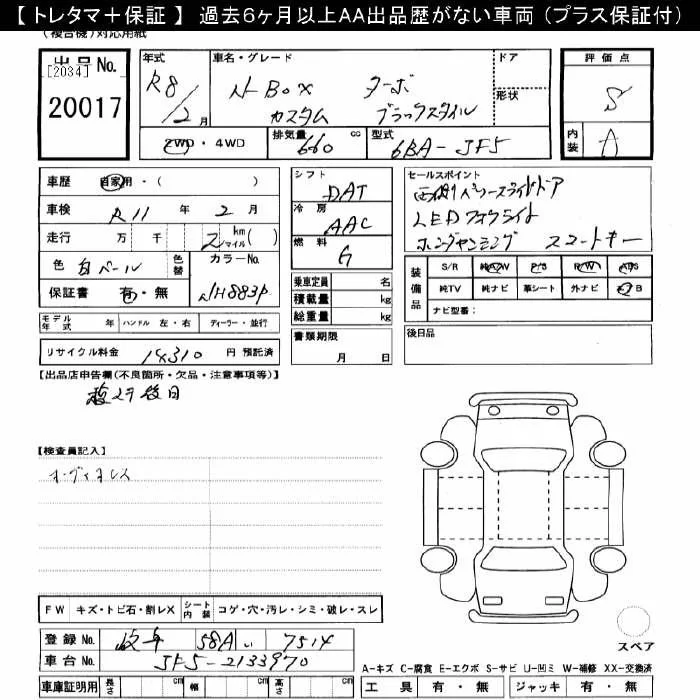 【 トレタマ＋保証 】 過去6ヶ月以上AA出品歴がない車両 (プラス保証付)
(複合機)対応用紙
出品No.
[2034]
20017
年式
R8/2月
車名・グレード
N BOX ターボ
カスタム ブラックスタイル
ドア
形状
評価点
S
内装 A
2WD・4WD
排気量 660 cc
型式 6BA-JF5
車歴 自家用・( )
車検 R11 年 2 月
走行 万 千 2 km マイル ( )
色 白パール
色替
カラーNo. NH883P
保証書 有・無
モデル年式 年 ハンドル 左・右 ディーラー・並行
リサイクル料金 14310 円 預託済
シフト DAT
冷房 AAC
燃料 G
乗車定員 名
積載量 kg
総重量 kg
書類期限
月 日
セールスポイント
両側パワースライドドア
LEDフォグライト
ホンダセンシング スマートキー
装備品
S/R 純AW P/S P/W ABS
純TV 純ナビ 革シート 外ナビ エアB
ナビ型番:
後日品
【出品店申告欄(不良箇所・欠品・注意事項等)】
【検査員記入】
オーディオレス
FW キズ・トビ石・割レX シート内装 コゲ・穴・汚レ・シミ・破レ・スレ
登録No. 岐阜 581A い 7514
車台No. JF5-2133970
車庫証明用 長さ cm 幅 cm 高さ cm
スペア
A-キズ C-腐食 E-エクボ S-サビ U-凹ミ W-補修 XX-交換済
工具 有・無 ジャッキ 有・無